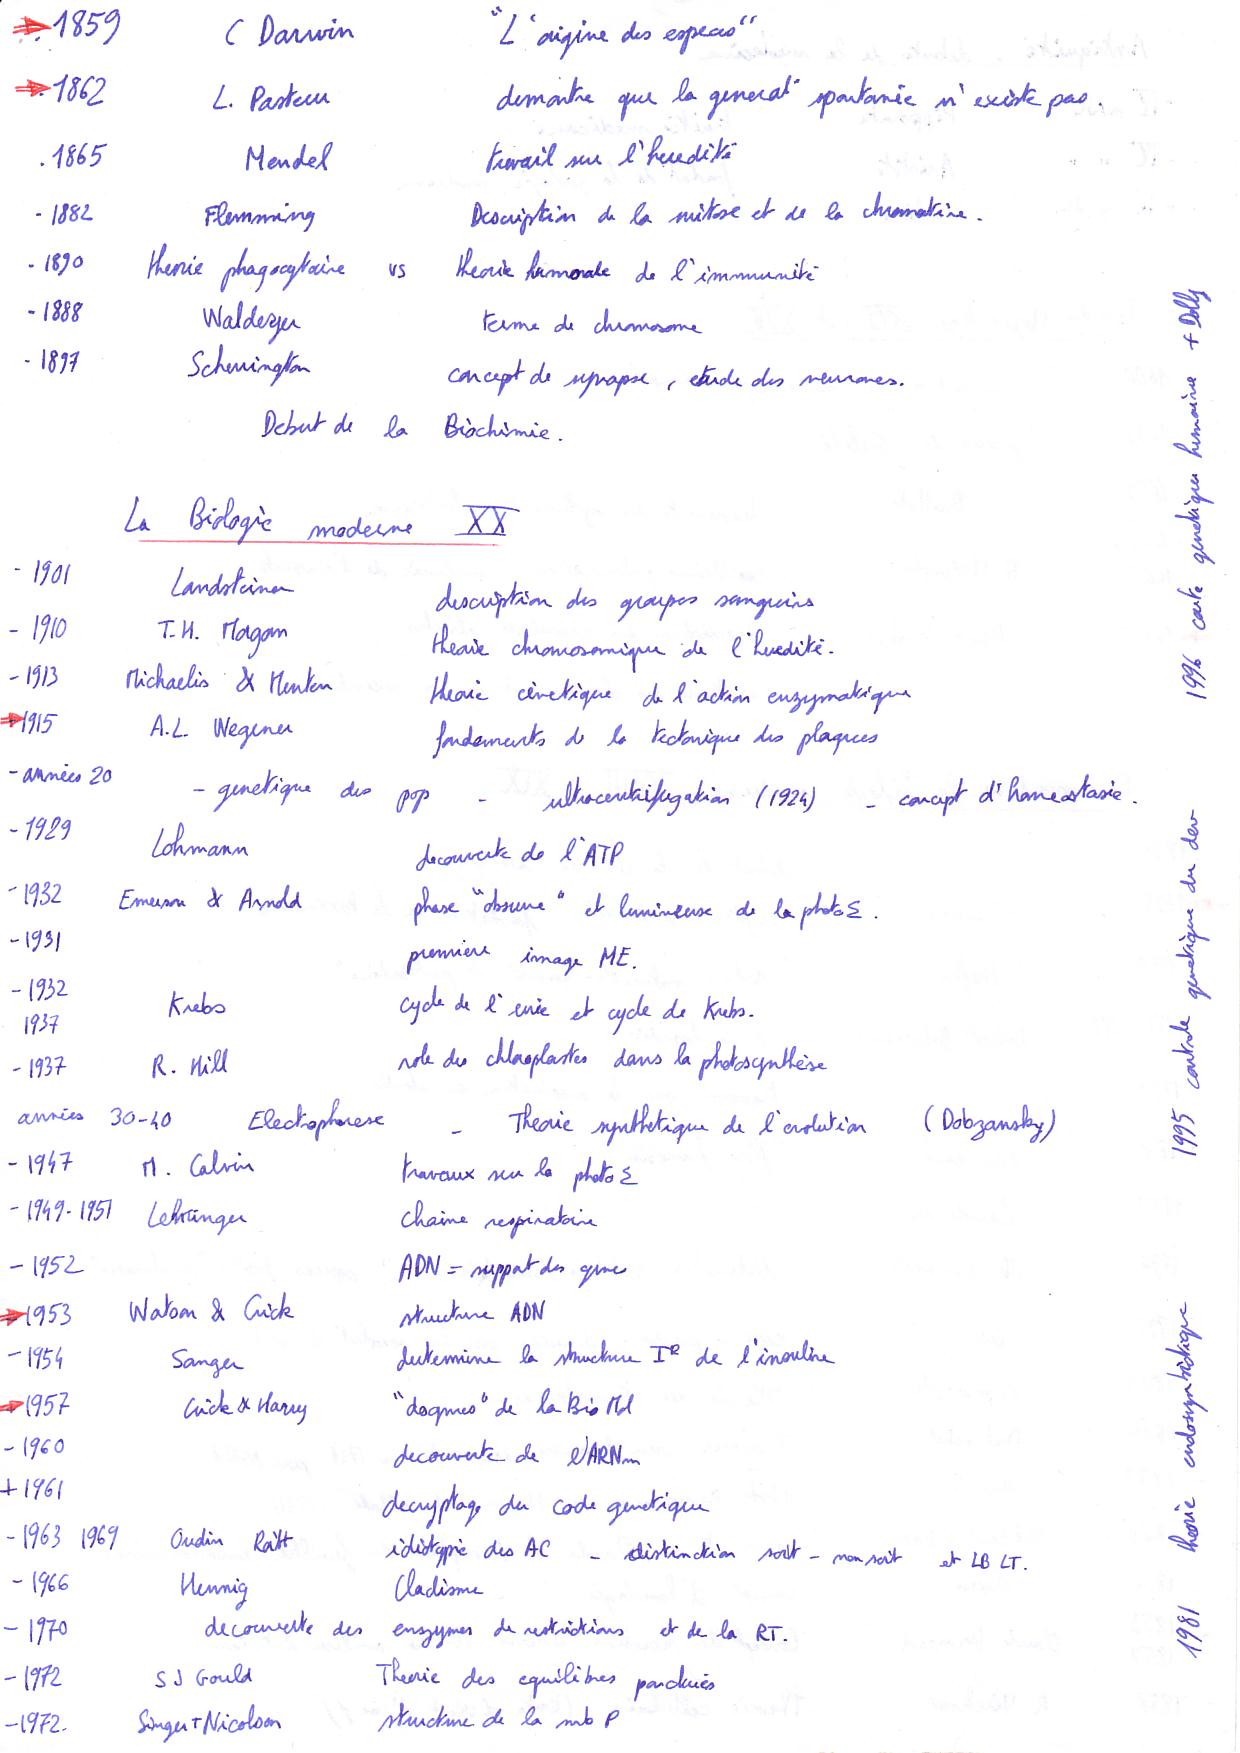 1859 C Darwin "L'origine des especes"
. 1862 L. Pasteur demontre que la generat° spontanée n'existe pas.
. 1865 Mendel travail sur l'heredité
- 1882 Flemming Description de la mitose et de la chromatine.
- 1890 theorie phagocytaire vs theorie humorale de l'immunité
- 1888 Waldeyer terme de chromosome
- 1897 Scherrington concept de synapse, etude des neurones.
Debut de la Biochimie.
La Biologie moderne XX
- 1901 Landsteiner description des groupes sanguins
- 1910 T.H. Morgan theorie chromosomique de l'heredité.
- 1913 Michaelis & Menten theorie cinetique de l'action enzymatique
1915 A.L. Wegener fondements de la tectonique des plaques
- années 20 - genetique des pop - ultracentrifugation (1924) - concept d'homeostasie.
- 1929 Lohmann decouverte de l'ATP
- 1932 Emerson & Arnold phase "obscure" et lumineuse de la photoΣ.
- 1931 première image ME.
- 1932 Krebs cycle de l'urée et cycle de Krebs.
1937
- 1937 R. Hill role des chloroplastes dans la photosynthèse
années 30-40 Electrophorese - Theorie synthetique de l'evolution (Dobzansky)
- 1947 M. Calvin travaux sur la photoΣ
- 1949-1951 Lehninger chaine respiratoire
- 1952 ADN = support des genes
1953 Watson & Crick structure ADN
- 1954 Sanger determine la structure IR de l'insuline
1957 Crick & "dogmes" de la Bio Mol
- 1960 decouverte de l'ARNm
+ 1961 decryptage du code genetique
- 1963 1969 Oudin idiotypie des AC - distinction soit - non soit et LB LT.
- 1966 Hennig Cladisme
- 1970 decouverte des enzymes de restrictions et de la RT.
- 1972 S J Gould Theorie des equilibres ponctués
- 1972. Singer + Nicolson structure de la mb P
1981 theorie endosymbiotique
1995 controle genetique du dev
1996 carte genetique humaine + Dolly